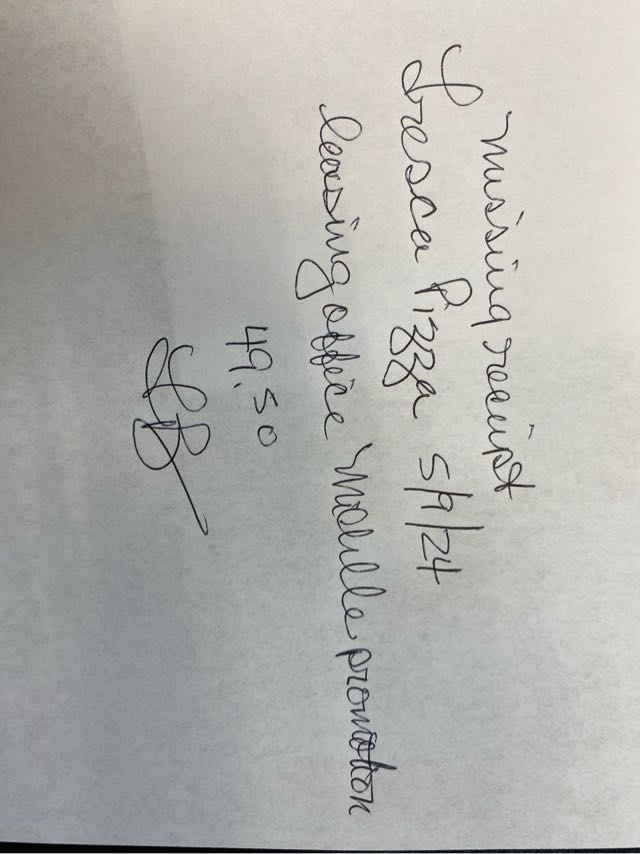 missing receipt
Fresca Pizza 5/9/24
leasing office promotion
49.50